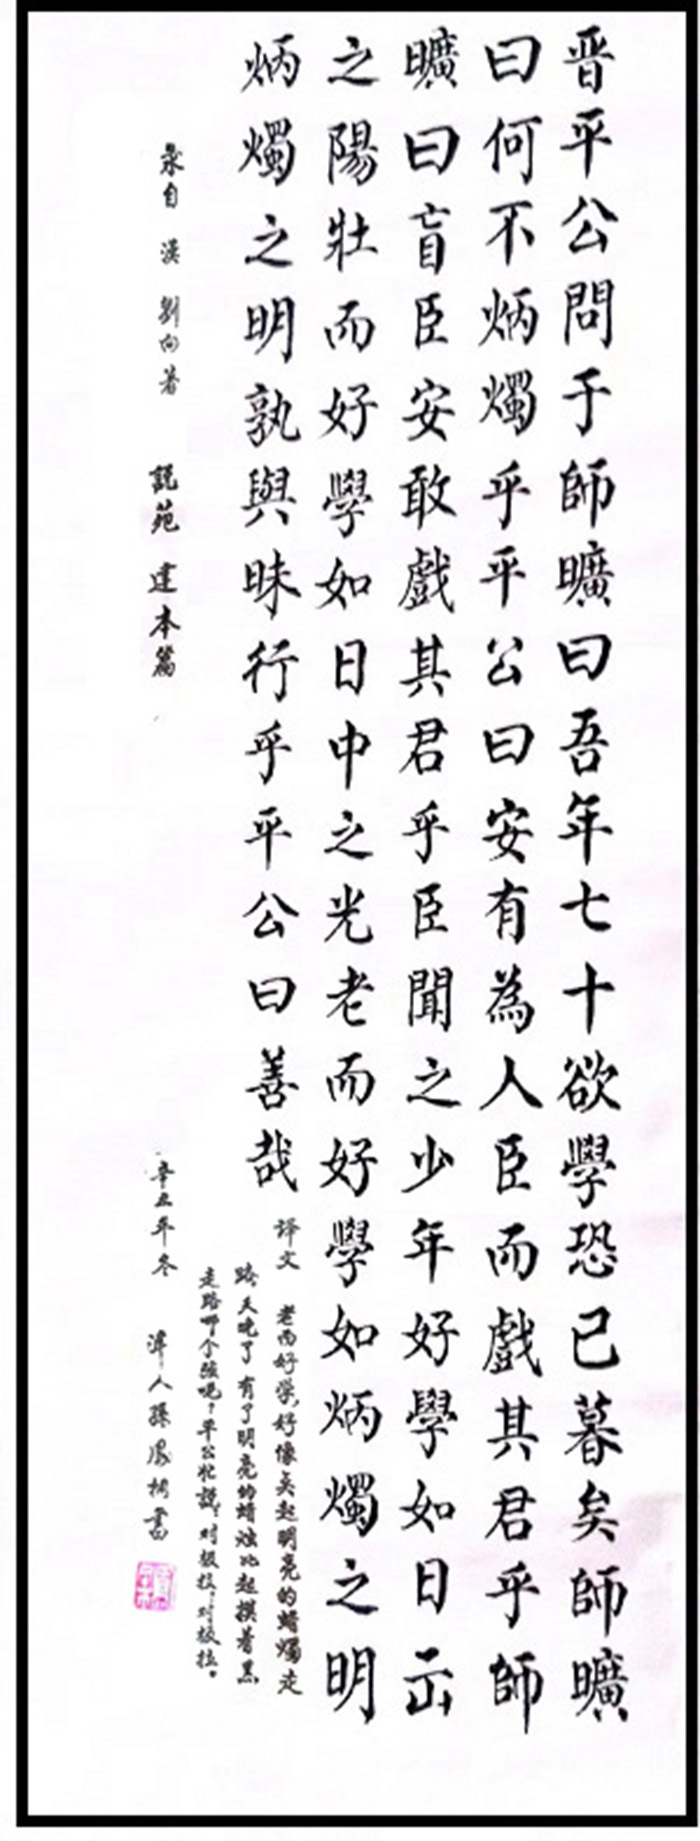 晋平公問于師曠曰吾年七十欲學恐已暮矣師曠
曰何不炳燭乎平公曰安有為人臣而戲其君乎師
曠曰盲臣安敢戲其君乎臣聞之少年好學如日出
之陽壯而好學如日中之光老而好學如炳燭之明
炳燭之明孰與昧行乎平公曰善哉
译文 老而好学,好像点起明亮的蜡燭走
路,天晚了有了明亮的蜡烛比起摸着黑
走路哪个強呢?平公忙説:对极拉,对极拉。
录自 漢 劉向著 説苑 建本篇
辛丑年冬 津人孫 書